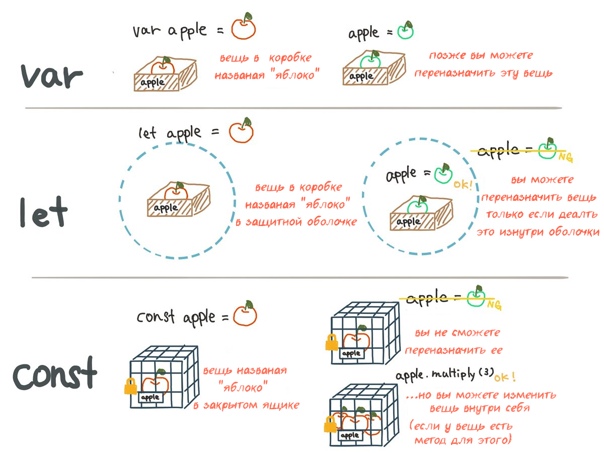 var apple =
apple =
var
apple
вещь в коробке
названая "яблоко"
apple
позже вы можете
переназначить эту вещь
let apple =
apple =
NG
apple =
OK!
let
apple
вещь в коробке
названая "яблоко"
в защитной оболочке
apple
вы можете
переназначить вещь
только если деалть
это изнутри оболочки
const apple =
apple =
NG
const
apple
вещь названая
"яблоко"
в закрытом ящике
apple
вы не сможете
переназначить ее
apple.multiply(3) OK!
apple
...но вы можете изменить
вещь внутри себя
(если у вещь есть
метод для этого)